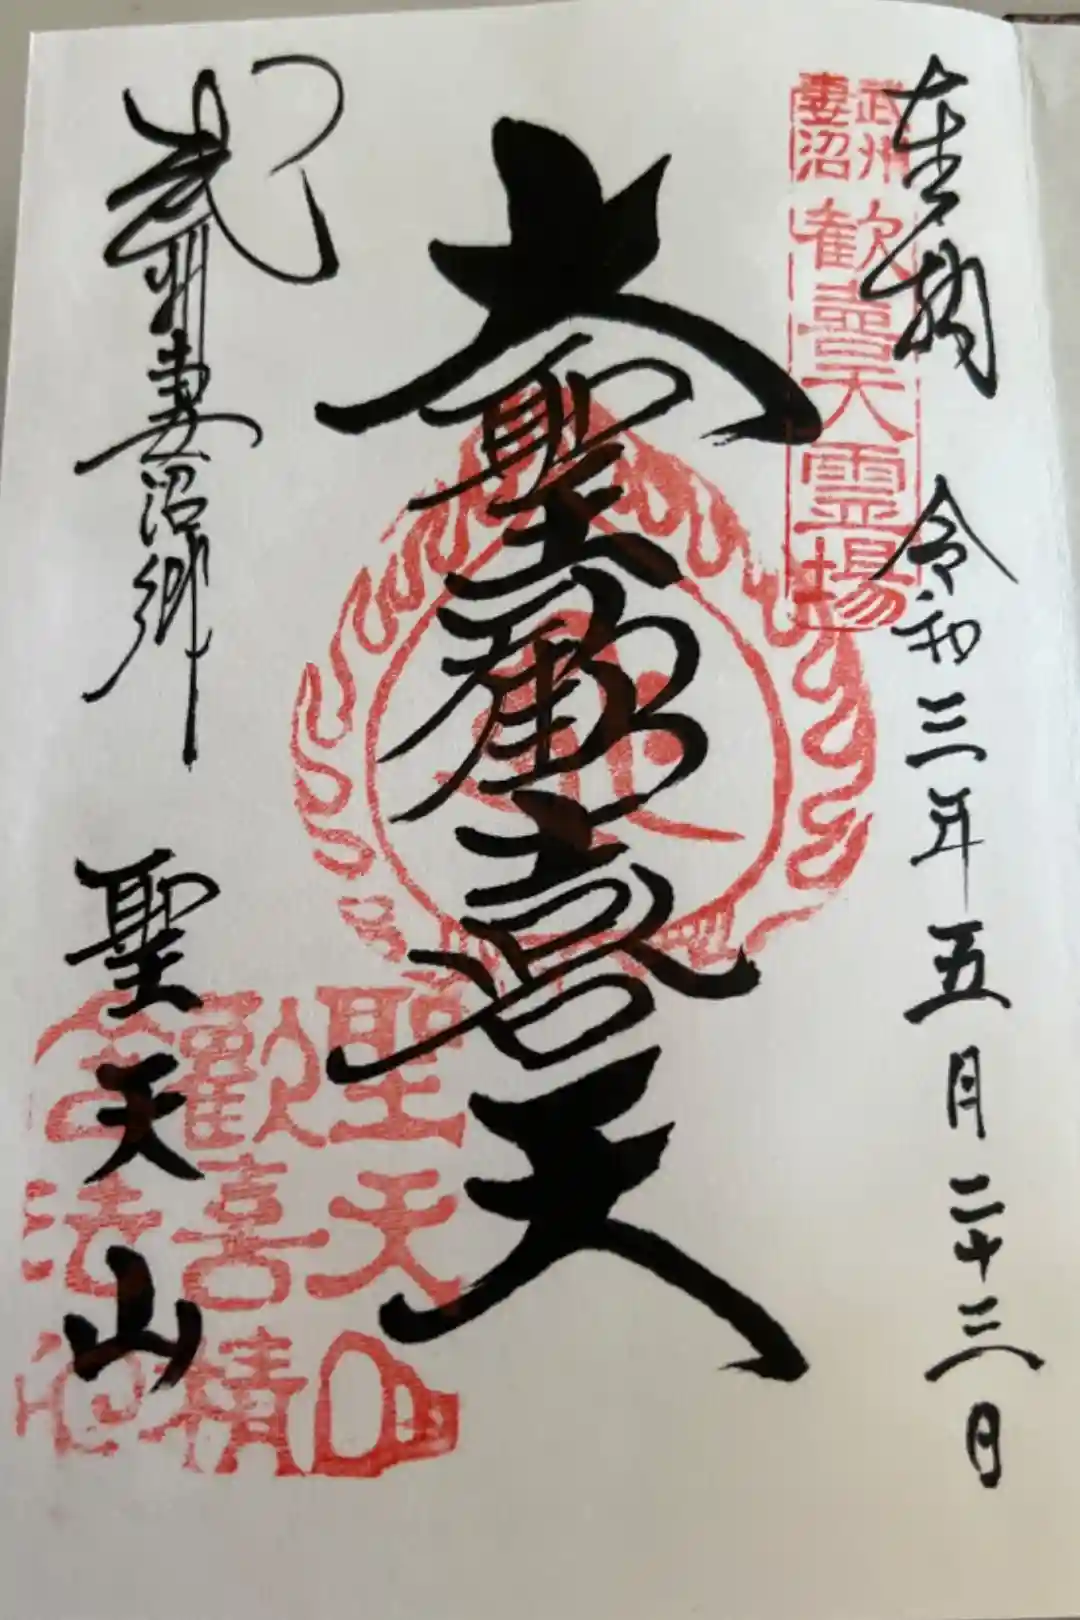 奉拝 令和三年五月二十三日
武州妻沼
歓喜天霊場
大聖歓喜天
武州妻沼郷 聖天山
聖天山
歓喜精
法